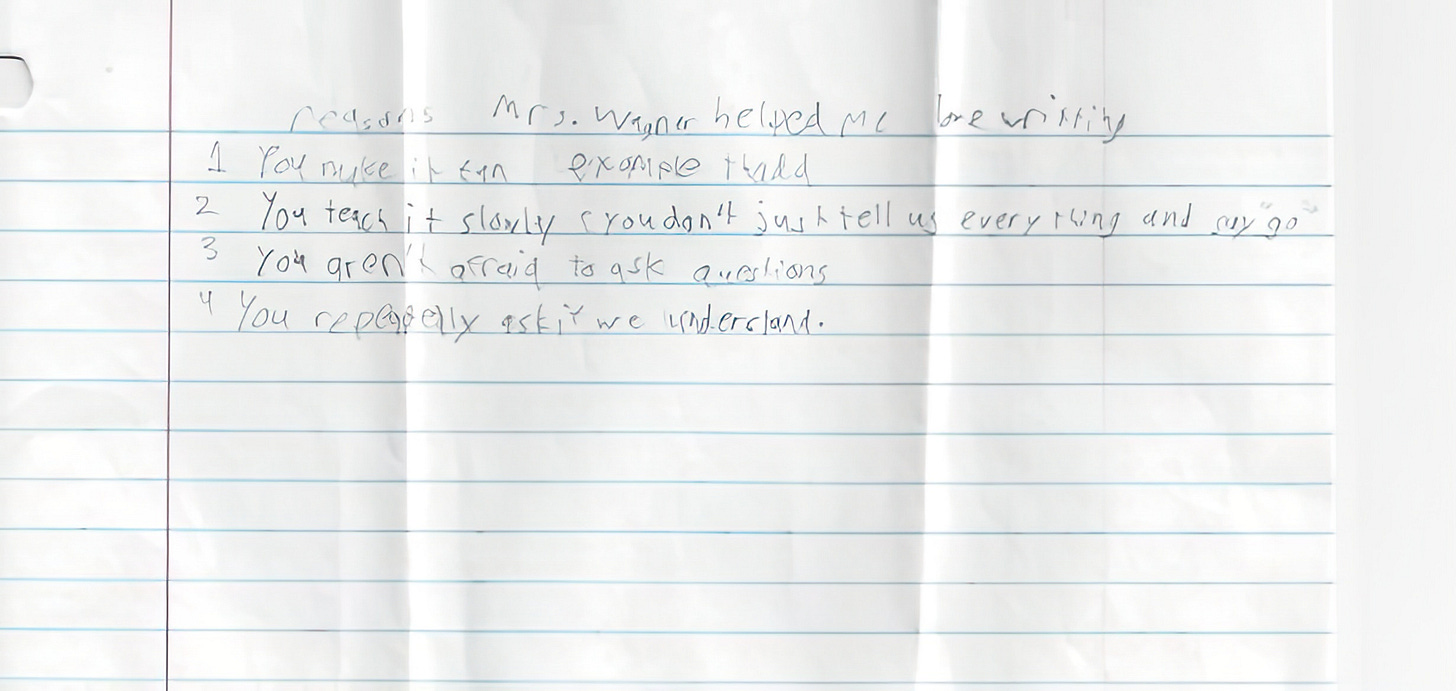 reasons Mrs. Wagner helped me love writting
1 You make it fun example
2 You teach it slowly (you don't just tell us every thing and say "go"
3 You aren't afraid to ask questions
4 You repeatedly ask if we understand.